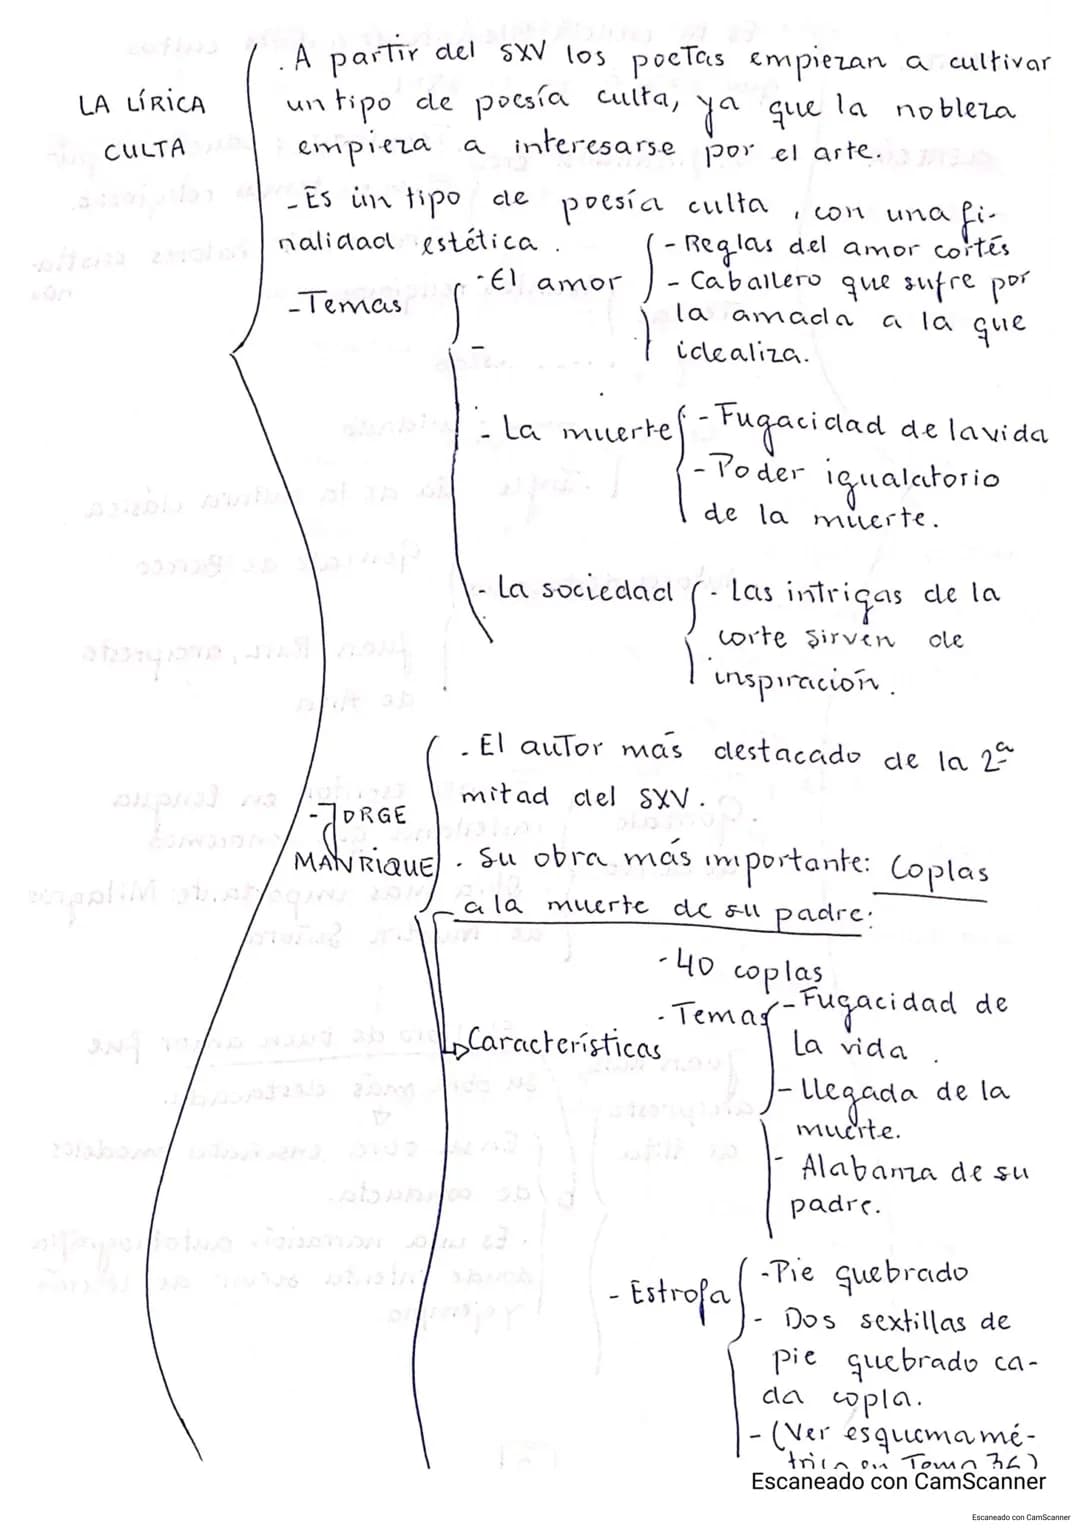 LA LÍRICA
CULTA
. A partir del SXV los poetas empiezan a cultivar
un tipo de poesía culta, ya que la nobleza
empieza a interesarse por el arte.
- Es un tipo de poesía culta, con una fi-
nalidad estética.
- Temas
- El amor
- Reglas del amor cortés
- Caballero que sufre por
la amada a la que
idealiza.
- La muerte
- Fugacidad de la vida
- Poder igualatorio
de la muerte.
- La sociedad
- Las intrigas de la
corte sirven de
inspiración.
- JORGE
MANRIQUE
. El autor más destacado de la 2ª
mitad del SXV.
. Su obra más importante: Coplas
a la muerte de su padre:
Características
- 40 coplas
. Temas
- Fugacidad de
la vida.
- llegada de la
muerte.
- Alabanza de su
padre.
- Estrofa
- Pie quebrado
- Dos sextillas de
pie quebrado ca-
da copla.
- (Ver esquema mé-
trico en Tema
Escaneado con CamScanner
Escaneado con CamScanner